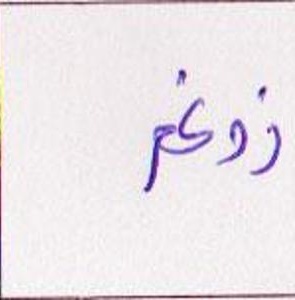 زدغم